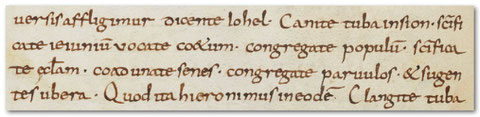 uersis affligimur dicente Iohel. Canite tuba in sion· sc̄ifi
cate ieiuniū uocate coetum· congregate populū· sc̄ifica
te ęcl̄am· coadunate senes· congregate paruulos· & sugen
tes ubera· Quod ita hieronimus in eodē· Clangite tuba